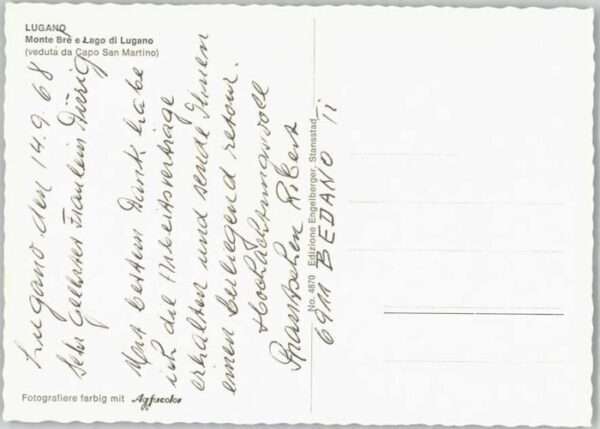 LUGANO
Monte Brè e Lago di Lugano
(veduta da Capo San Martino)
Lugano den 14.9.68
Sehr Geehrtes Fräulein Dürig
Mit bestem Dank habe
ich die Arbeitsverträge
erhalten und sende Ihnen
einen beiliegend retour.
Hochachtungsvoll
6911 BEDANO
No. 4870 Edizione Engelberger, Stansstad
Fotografiere farbig mit Agfacolor